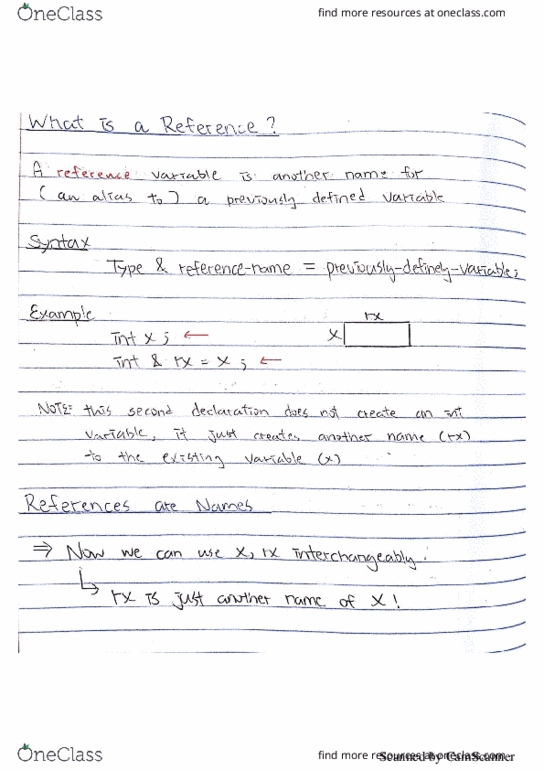 OneClass
find more resources at oneclass.com
What is a Reference?
A reference variable is another name for
(an alias to) a previously defined variable
Syntax
Type & reference-name = previously-definely-variable;
Example
rx
int x; ←
x
int & rx = x; ←
NOTE: this second declaration does not create an int
variable, it just creates another name (rx)
to the existing variable (x)
References are Names
⇒ Now we can use x, rx interchangeably.
↳ rx is just another name of x!
OneClass
find more resources at oneclass.com
Scanned by CamScanner